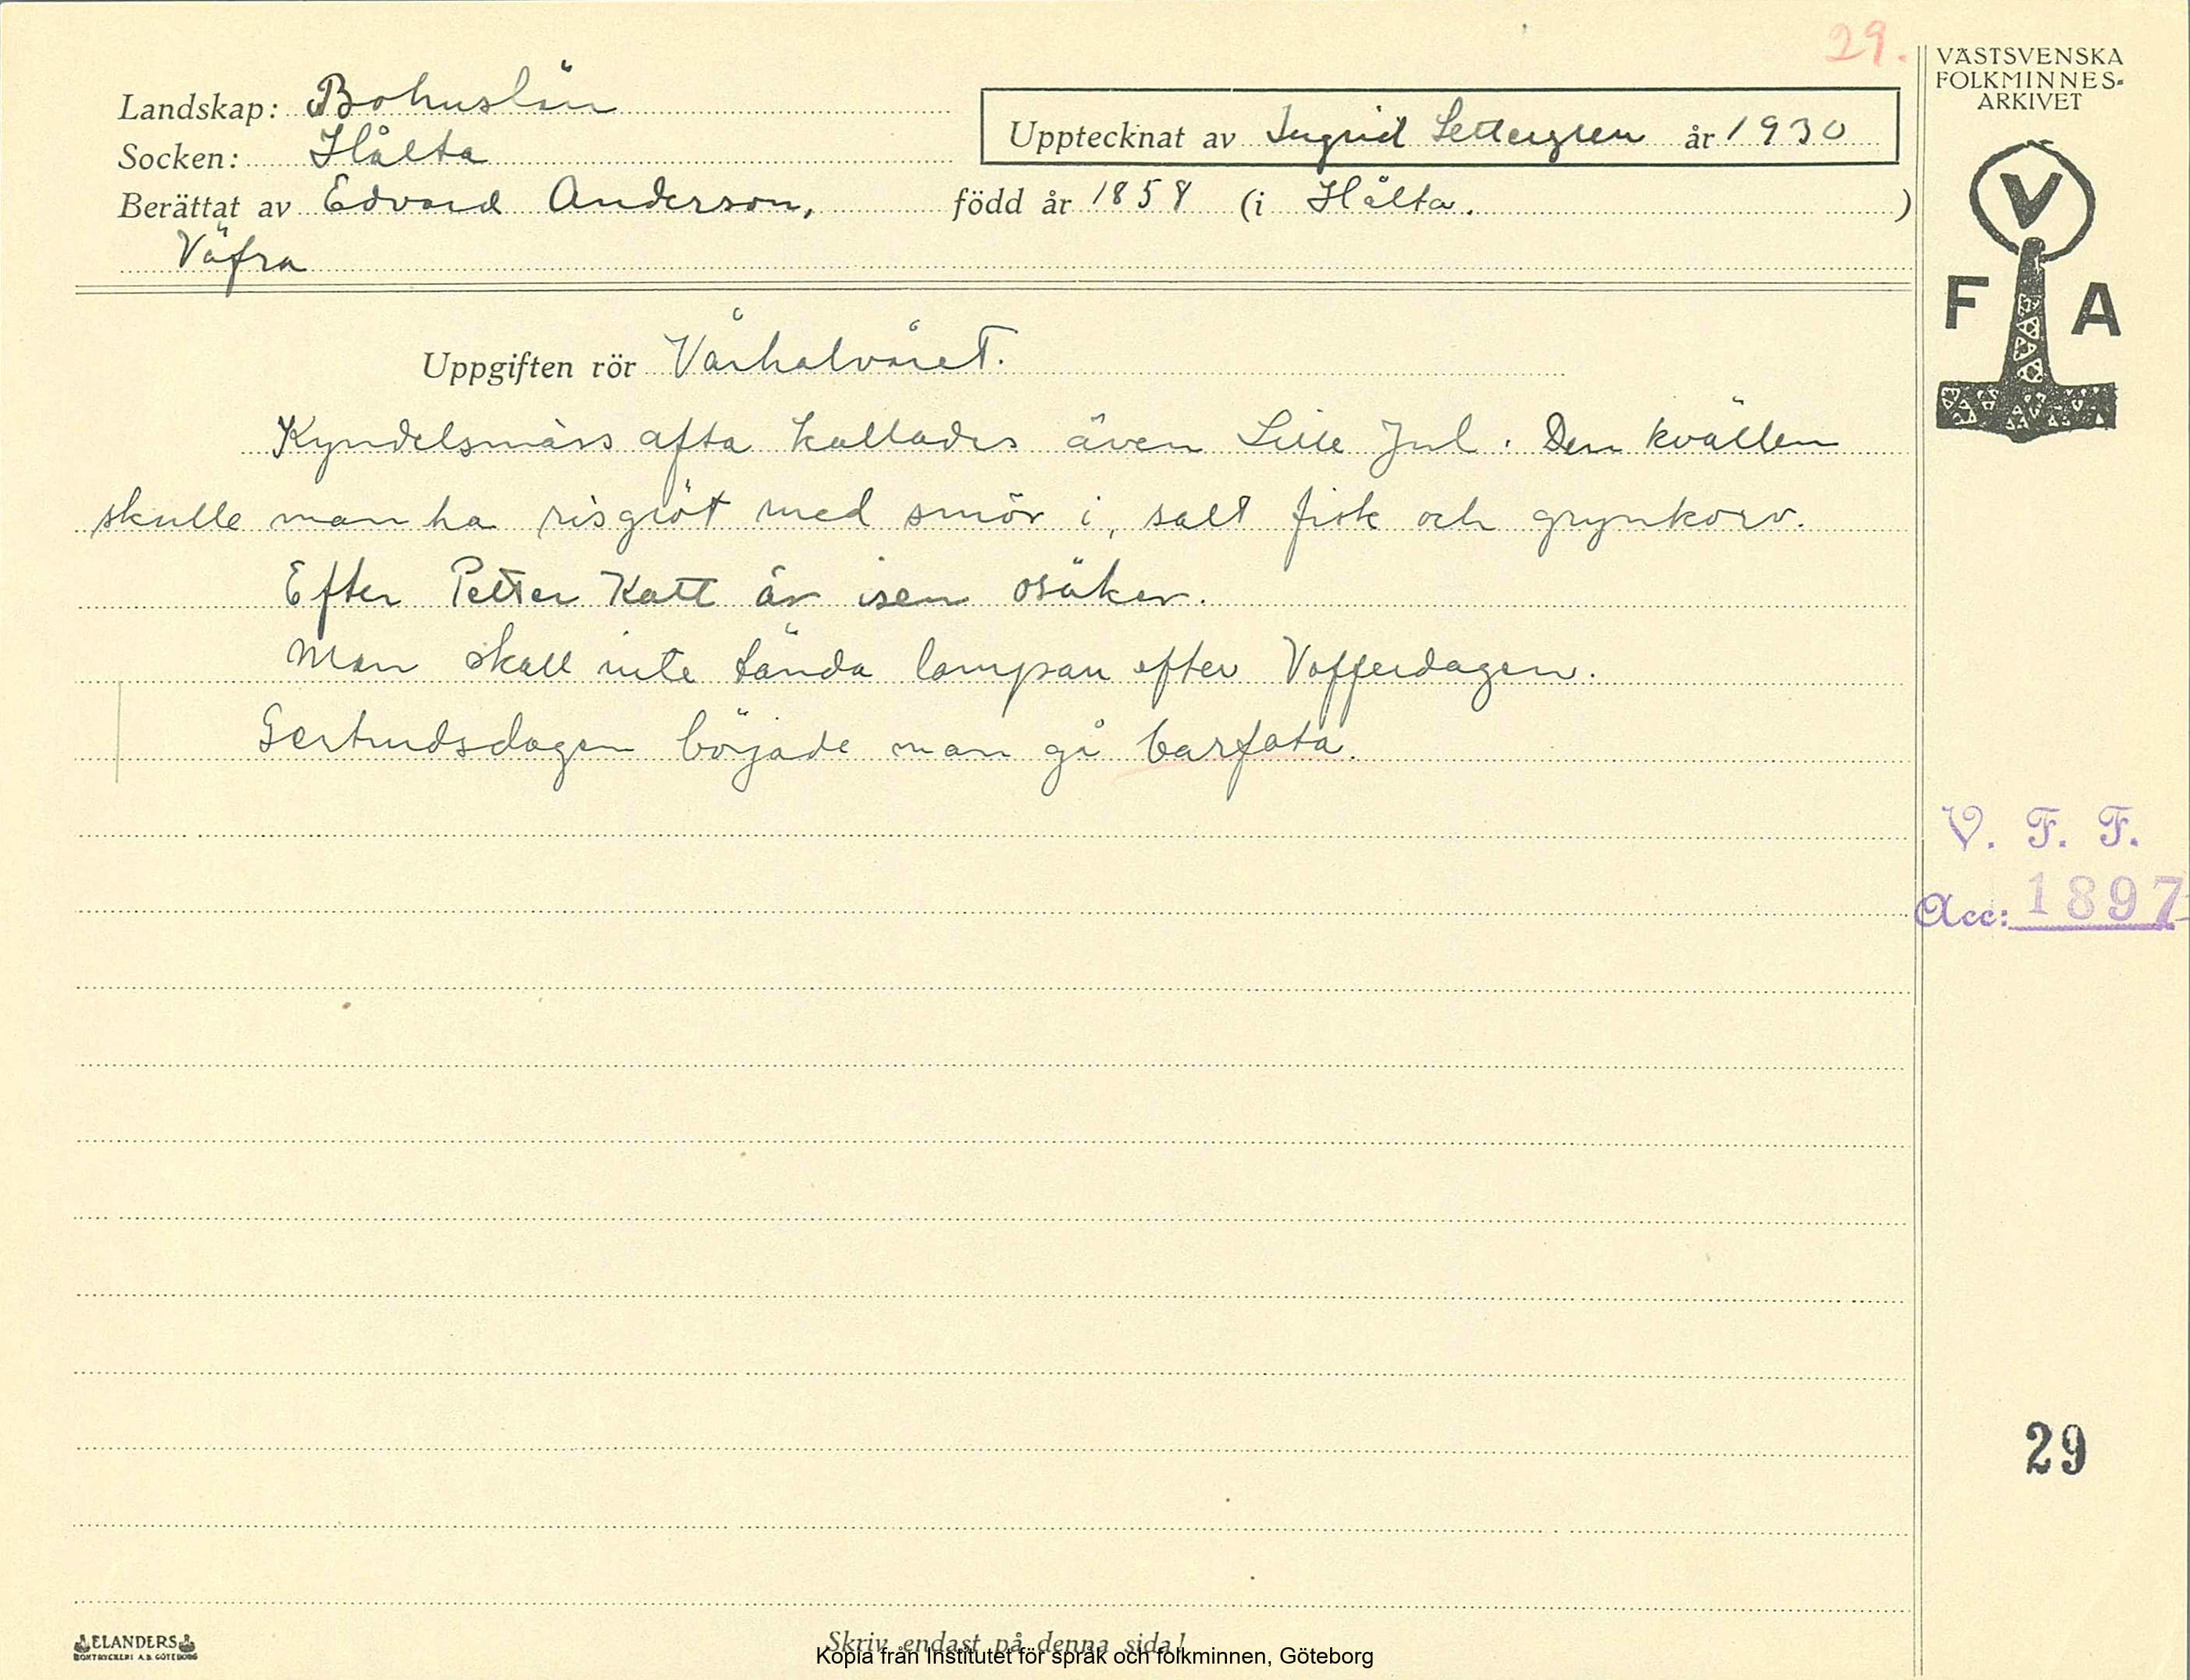 29.
VÄSTSVENSKA
FOLKMINNES-
ARKIVET
Landskap: Bohuslän
Upptecknat av Ingrid Settergren år 1930
Socken: Hålta
Berättat av Edvard Anderson, född år 1858 (i Hålta. )
Väfra
V
F A
Uppgiften rör Vårhalvåret.
Kyndelsmäss afta kallades även Lille Jul. Den kvällen
skulle man ha risgröt med smör i, salt fisk och grynkorv.
Efter Petter Katt är isen osäker.
Man skall inte tända lampan efter Vofferdagen.
Gertrudsdagen började man gå barfota.
V. F. F.
Acc: 1897
29
ELANDERS
BOKTRYCKERI A.B. GÖTEBORG
Skriv endast på denna sida!
Kopia från Institutet för språk och folkminnen, Göteborg